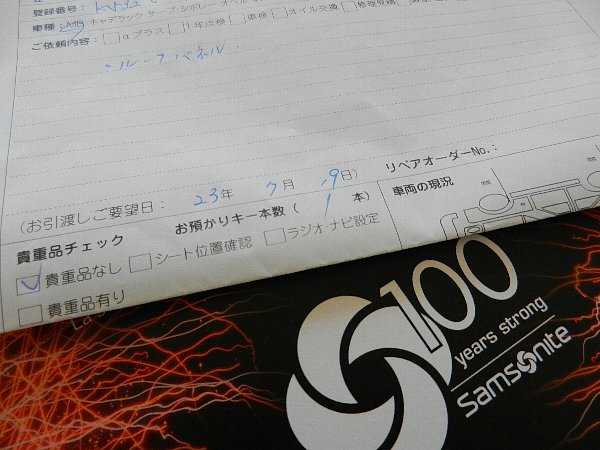 登録番号：
車種：AMG キャデラック サーブ・シボレー・オペル
ご依頼内容：□αプラス □1年点検 □車検 □オイル交換 □修理見積
・ルーフパネル
（お引渡しご要望日：23年 7月 9日）
リペアオーダーNo.：
貴重品チェック お預かりキー本数（ 1 本） 車両の現況
貴重品なし シート位置確認 ラジオ ナビ設定
貴重品有り
100
years strong
Samsonite